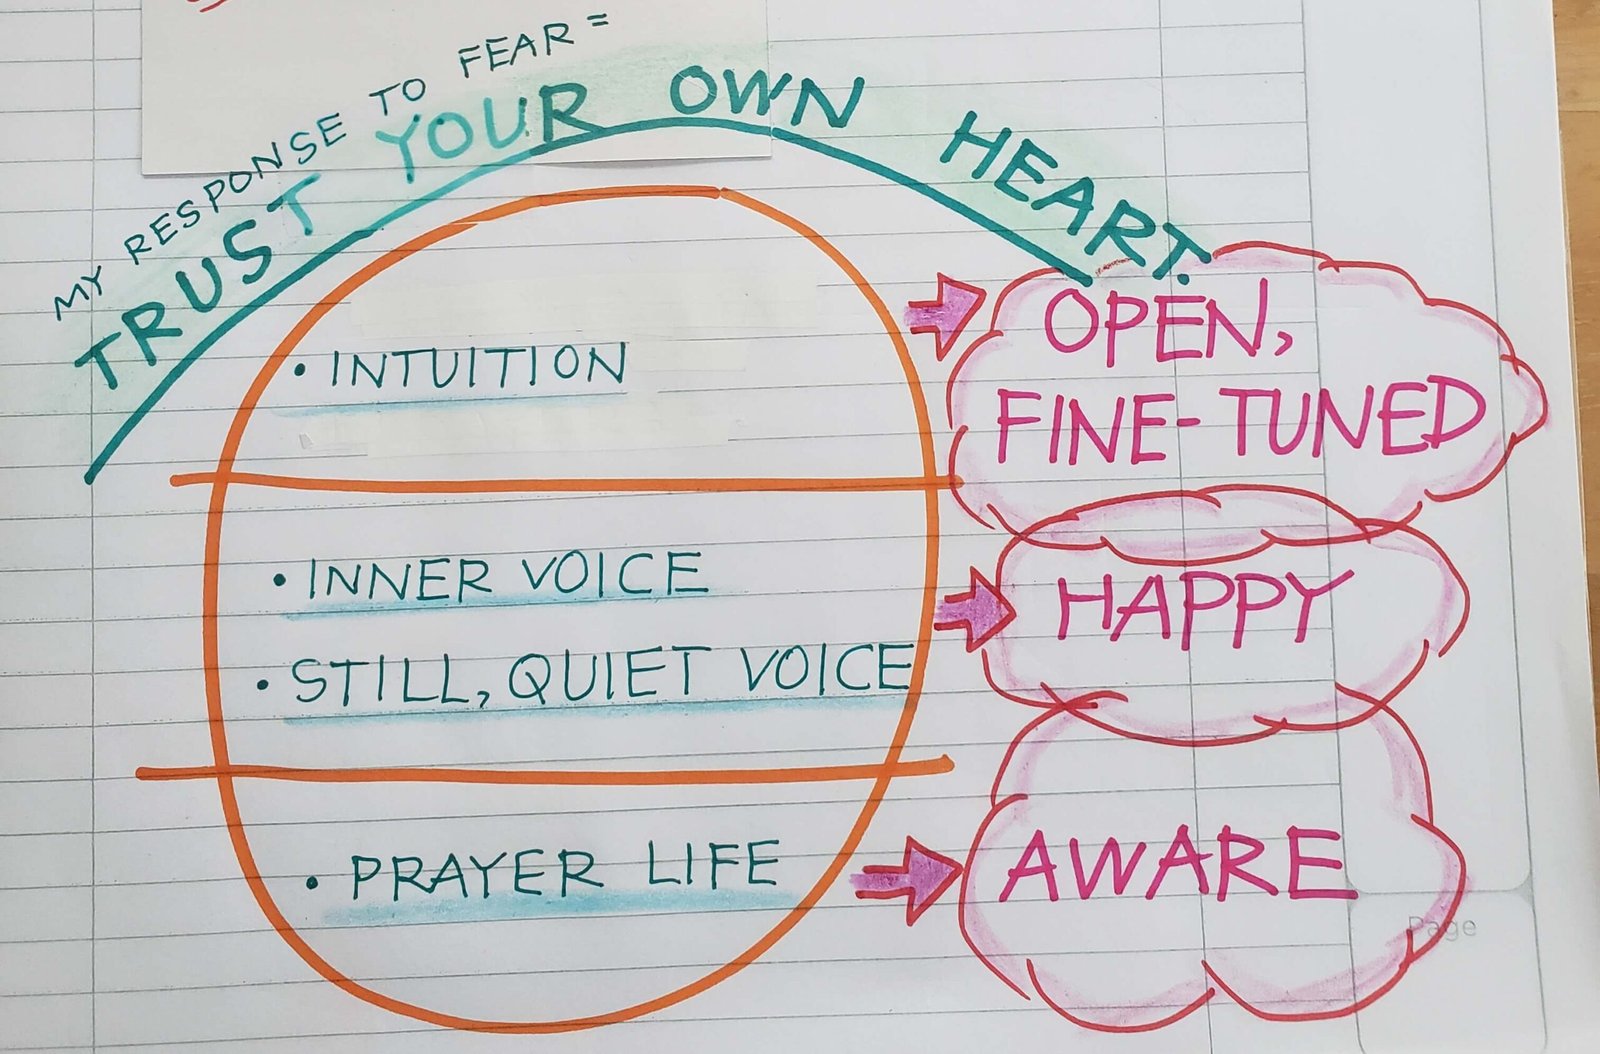 MY RESPONSE TO FEAR =
TRUST YOUR OWN HEART.
• INTUITION
OPEN,
FINE-TUNED
• INNER VOICE
HAPPY
• STILL, QUIET VOICE
• PRAYER LIFE
AWARE
Page